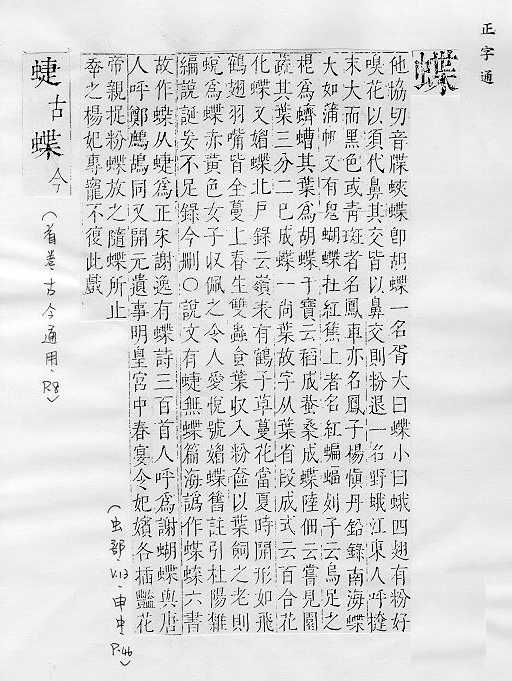 正字通
蝶
他協切音牒蛺蝶卽胡蝶一名胥大曰蝶小曰蛾四翅有粉好
嗅花以須代鼻其交皆以鼻交則粉退一名野蛾江東人呼撻
末大而黑色或靑斑者名鳳車亦名鳳子楊愼丹鉛錄南海蝶
大如蒲帆又有鬼蝴蝶杜紅蕉上者名紅蝙蝠列子云烏足之
根爲蠐螬其葉爲胡蝶干寶云稻成蛬桑成蝶陸佃云嘗見園
蔬其葉三分二巳成蝶一尚葉故字从葉省段成式云百合花
化蝶又媚蝶北戸錄云嶺表有鶴子草蔓花當夏時開形如飛
鶴翅羽嘴皆全蔓上春生雙蟲食葉收入粉奩以葉飼之老則
蛻爲蝶赤黃色女子收佩之令人愛悅號媚蝶舊註引杜陽雜
編說誕妄不足錄今刪〇說文有蜨無蝶篇海譌作蝶蝶六書
故作蝶从蜨爲正宋謝逸有蝶詩三百首人呼爲謝蝴蝶與唐
人呼鄭鷓鴣同又開元遺事明皇宮中春宴令妃嬪各插豔花
帝親捉粉蝶放之隨蝶所止
幸之楊妃專寵不復此戲
(虫部.V.13.申中P.46)
蜨古蝶今
(首卷古今通用.P.8)